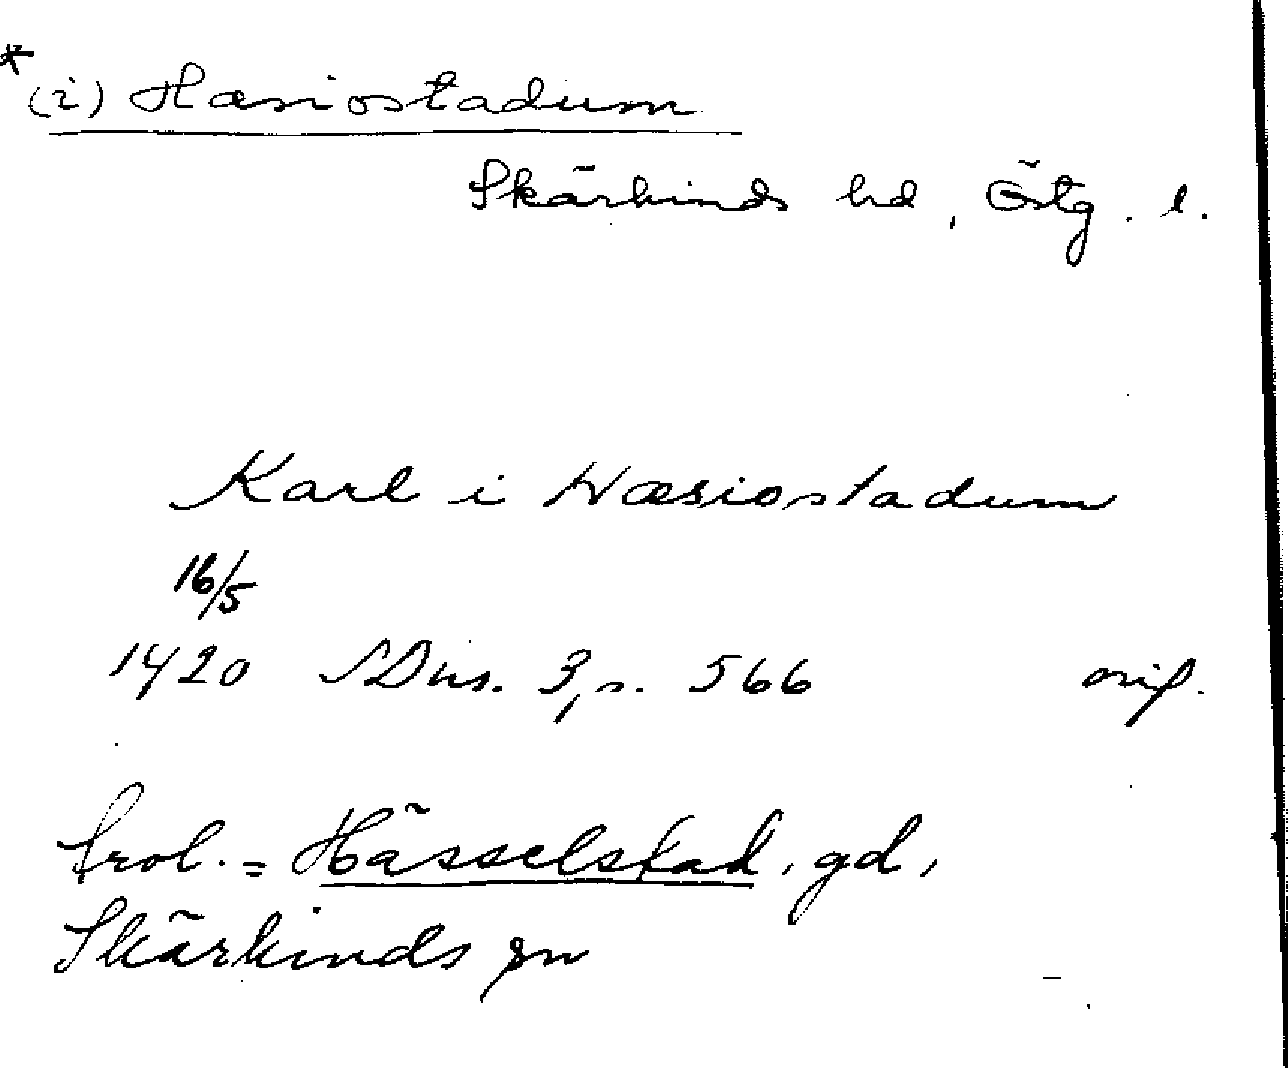 *(i) Hæsiostadum
Skärkinds hd, Östg. l.
Karl i Hæsiostadum
16/5
1420 SDns. 3, s. 566 orig.
trol. = Hässelstad, gd,
Skärkinds sn